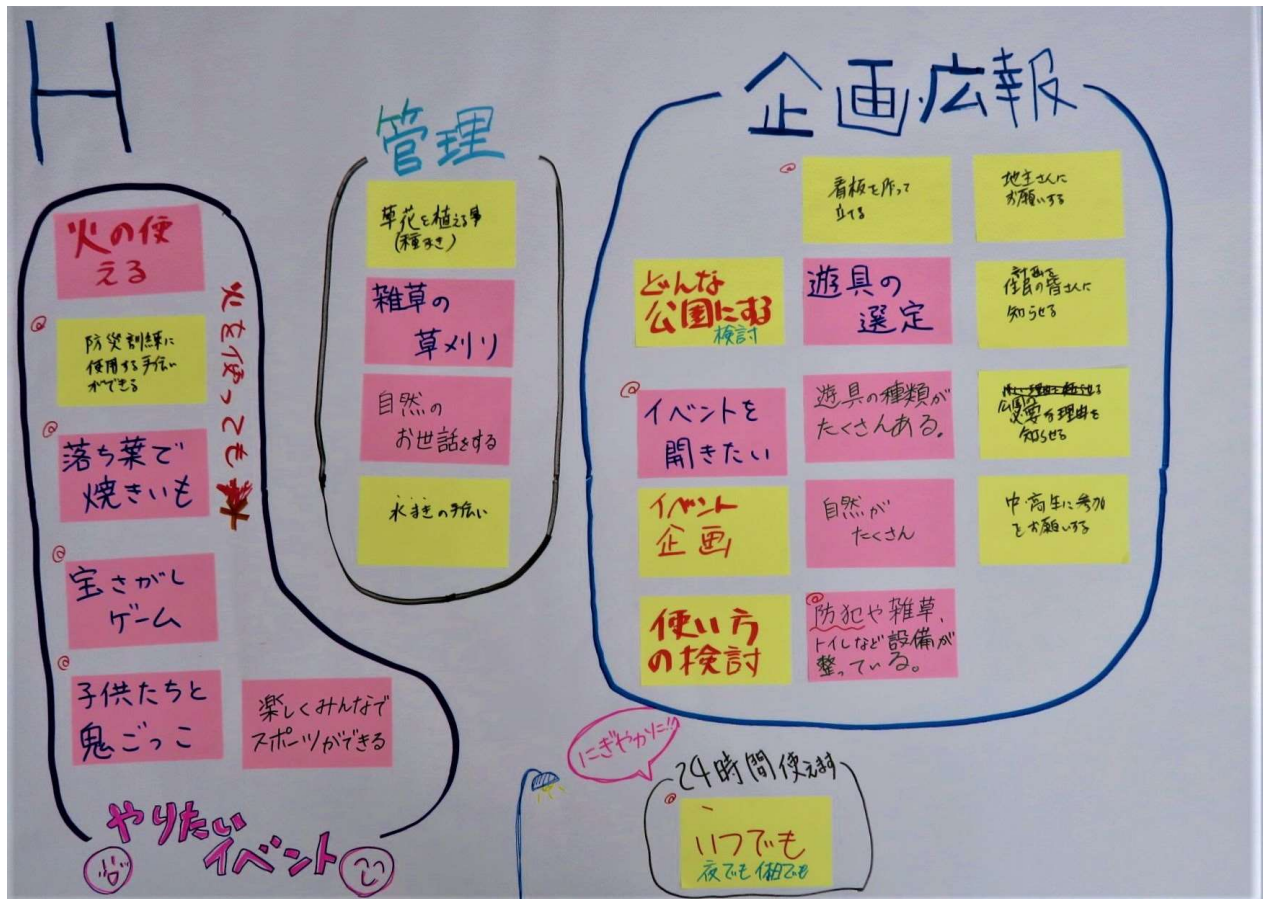 H
火の使
える
火を使っても
防災訓練に
使用する手伝い
ができる
落ち葉で
焼きいも
宝さがし
ゲーム
子供たちと
鬼ごっこ
楽しくみんなで
スポーツができる
やりたい
イベント
管理
草花を植える事
(種まき)
雑草の
草メリ
自然の
お世話をする
水まきの手伝い
企画・広報
看板を作って
立てる
地主さんに
お願いする
どんな
公園にする
検討
遊具の
選定
計画を
住民の皆さんに
知らせる
イベントを
開きたい
遊具の種類が
たくさんある。
公園の
必要な理由を
知らせる
イベント
企画
自然が
たくさん
中・高生に参加
をお願いする
使い方
の検討
防犯や雑草、
トイレなど設備が
整っている。
にぎやかに!!
24時間使えます
いつでも
夜でも 休日でも